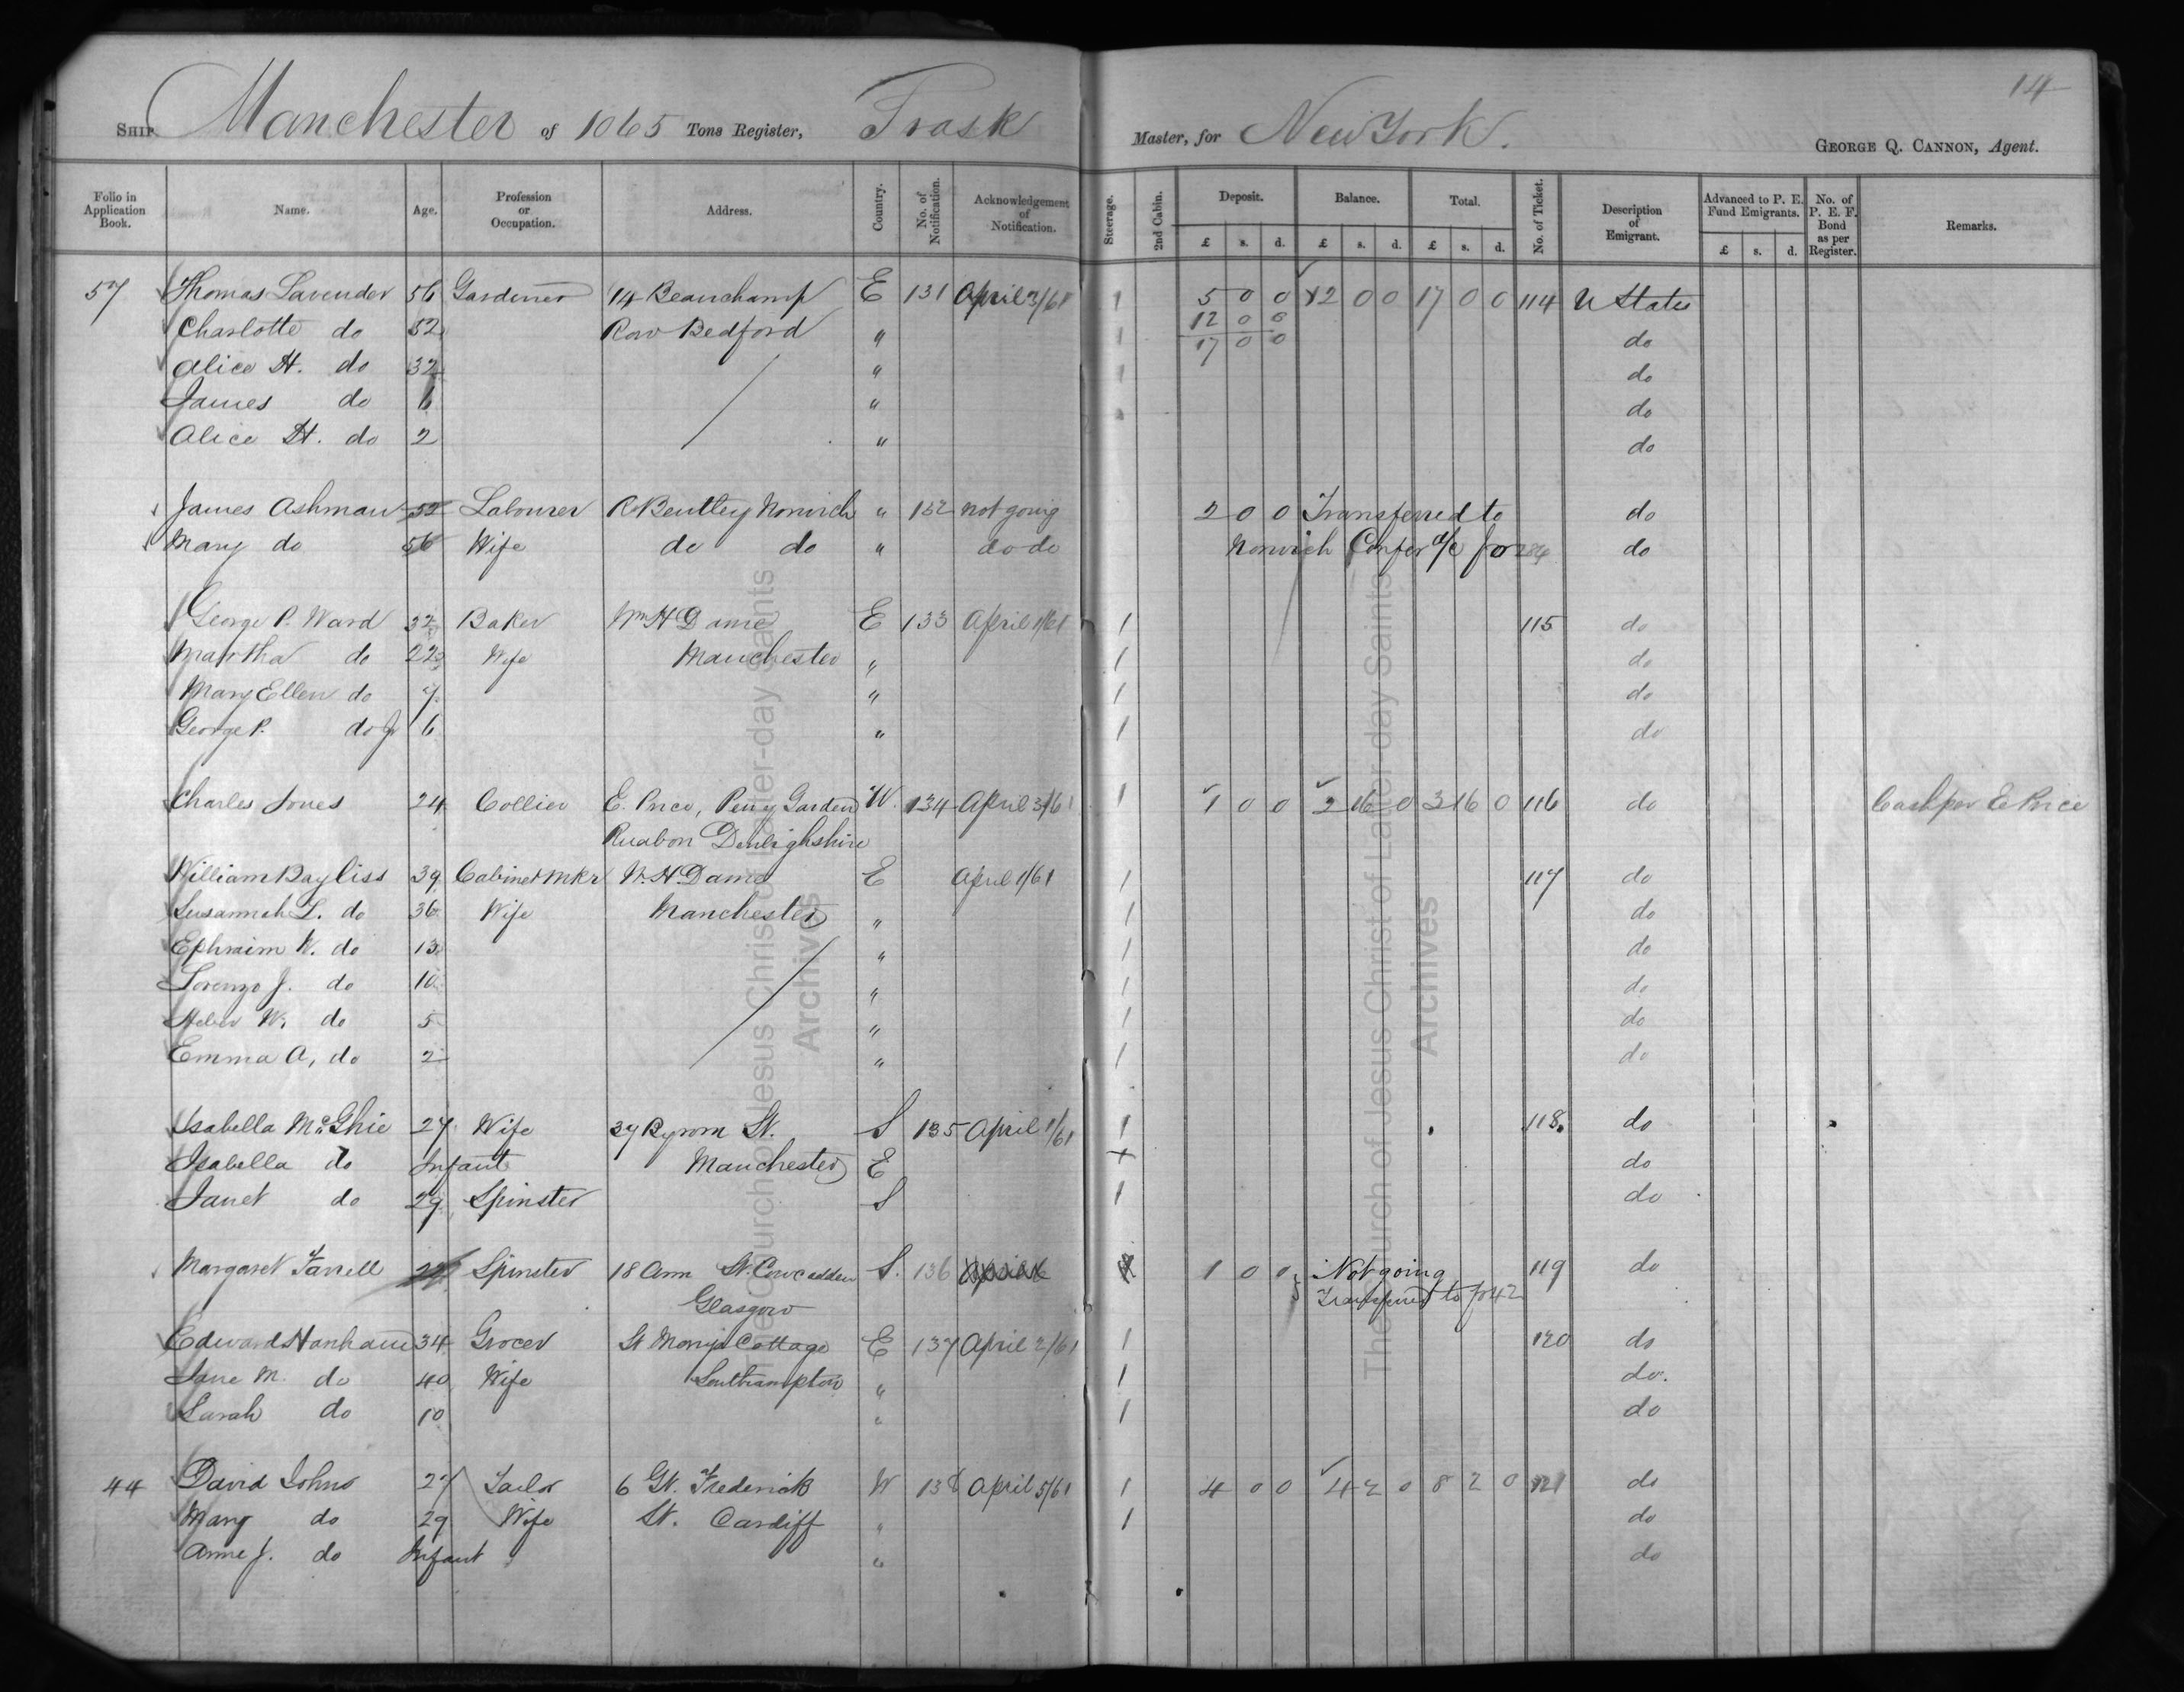 14
Ship Manchester of 1065 Tons Register, Trask Master, for New York. George Q. Cannon, Agent.
Folio in Application Book. Name. Age. Profession or Occupation. Address. Country. No. of Notification. Acknowledgement of Notification. Steerage. 2nd Cabin. Deposit. Balance. Total. No. of Ticket. Description of Emigrant. Advanced to P. E. Fund Emigrants. No. of P. E. F. Bond as per Register. Remarks.
£ s. d. £ s. d. £ s. d. £ s. d.
57 Thomas Lavender 56 Gardener 14 Beauchamp E 131 April 3/61 1 5 0 0 12 0 0 17 0 0 114 U States
Charlotte do 52 Row Bedford " 1 12 0 0 do
17 0 0
Alice H. do 32 " 1 do
James do 6 " do
Alice H. do 2 " do
James Ashman 52 Labourer R Bentley Norwich " 132 not going 2 0 0 Transferred to do
Mary do 56 Wife do do " do do Norwich Confer a/c fo do
George P. Ward 32 Baker Wm H Dame E 133 April 1/61 1 115 do
Martha do 22 Wife Manchester " 1 do
Mary Ellen do 7 " 1 do
George P. do Jr 6 " 1 do
Charles Jones 24 Collier E. Price, Peny Garden W. 134 April 3/61 1 1 0 0 2 16 0 3 16 0 116 do Cash per E Price
Ruabon Denbighshire
William Bayliss 39 Cabinet Mkr W. H Dame E April 1/61 1 117 do
Susannah L. do 36 Wife Manchester " 1 do
Ephraim W. do 13 " 1 do
Lorenzo J. do 10 " 1 do
Heber W. do 5 " 1 do
Emma A, do 2 " 1 do
Isabella McGhie 27 Wife 37 Byrom St. S 135 April 1/61 1 118 do
Isabella do Infant Manchester E + do
Janet do 29 Spinster S 1 do
Margaret Farrell Spinster 18 Ann St. Cowcadden S. 136 1 0 0 Not going 119 do
Glasgow Transferred to fo 42
Edward Hanham 34 Grocer St Marys Cottage E 137 April 2/61 1 120 do
Jane M. do 40 Wife Southampton " 1 do.
Sarah do 10 " 1 do
44 David Johns 27 Tailor 6 Gt. Frederick W 138 April 5/61 1 4 0 0 4 2 0 8 2 0 121 do
Mary do 29 Wife St. Cardiff " 1 do
Anne J. do Infant " do
The Church of Jesus Christ of Latter-day Saints
Archives
The Church of Jesus Christ of Latter-day Saints
Archives